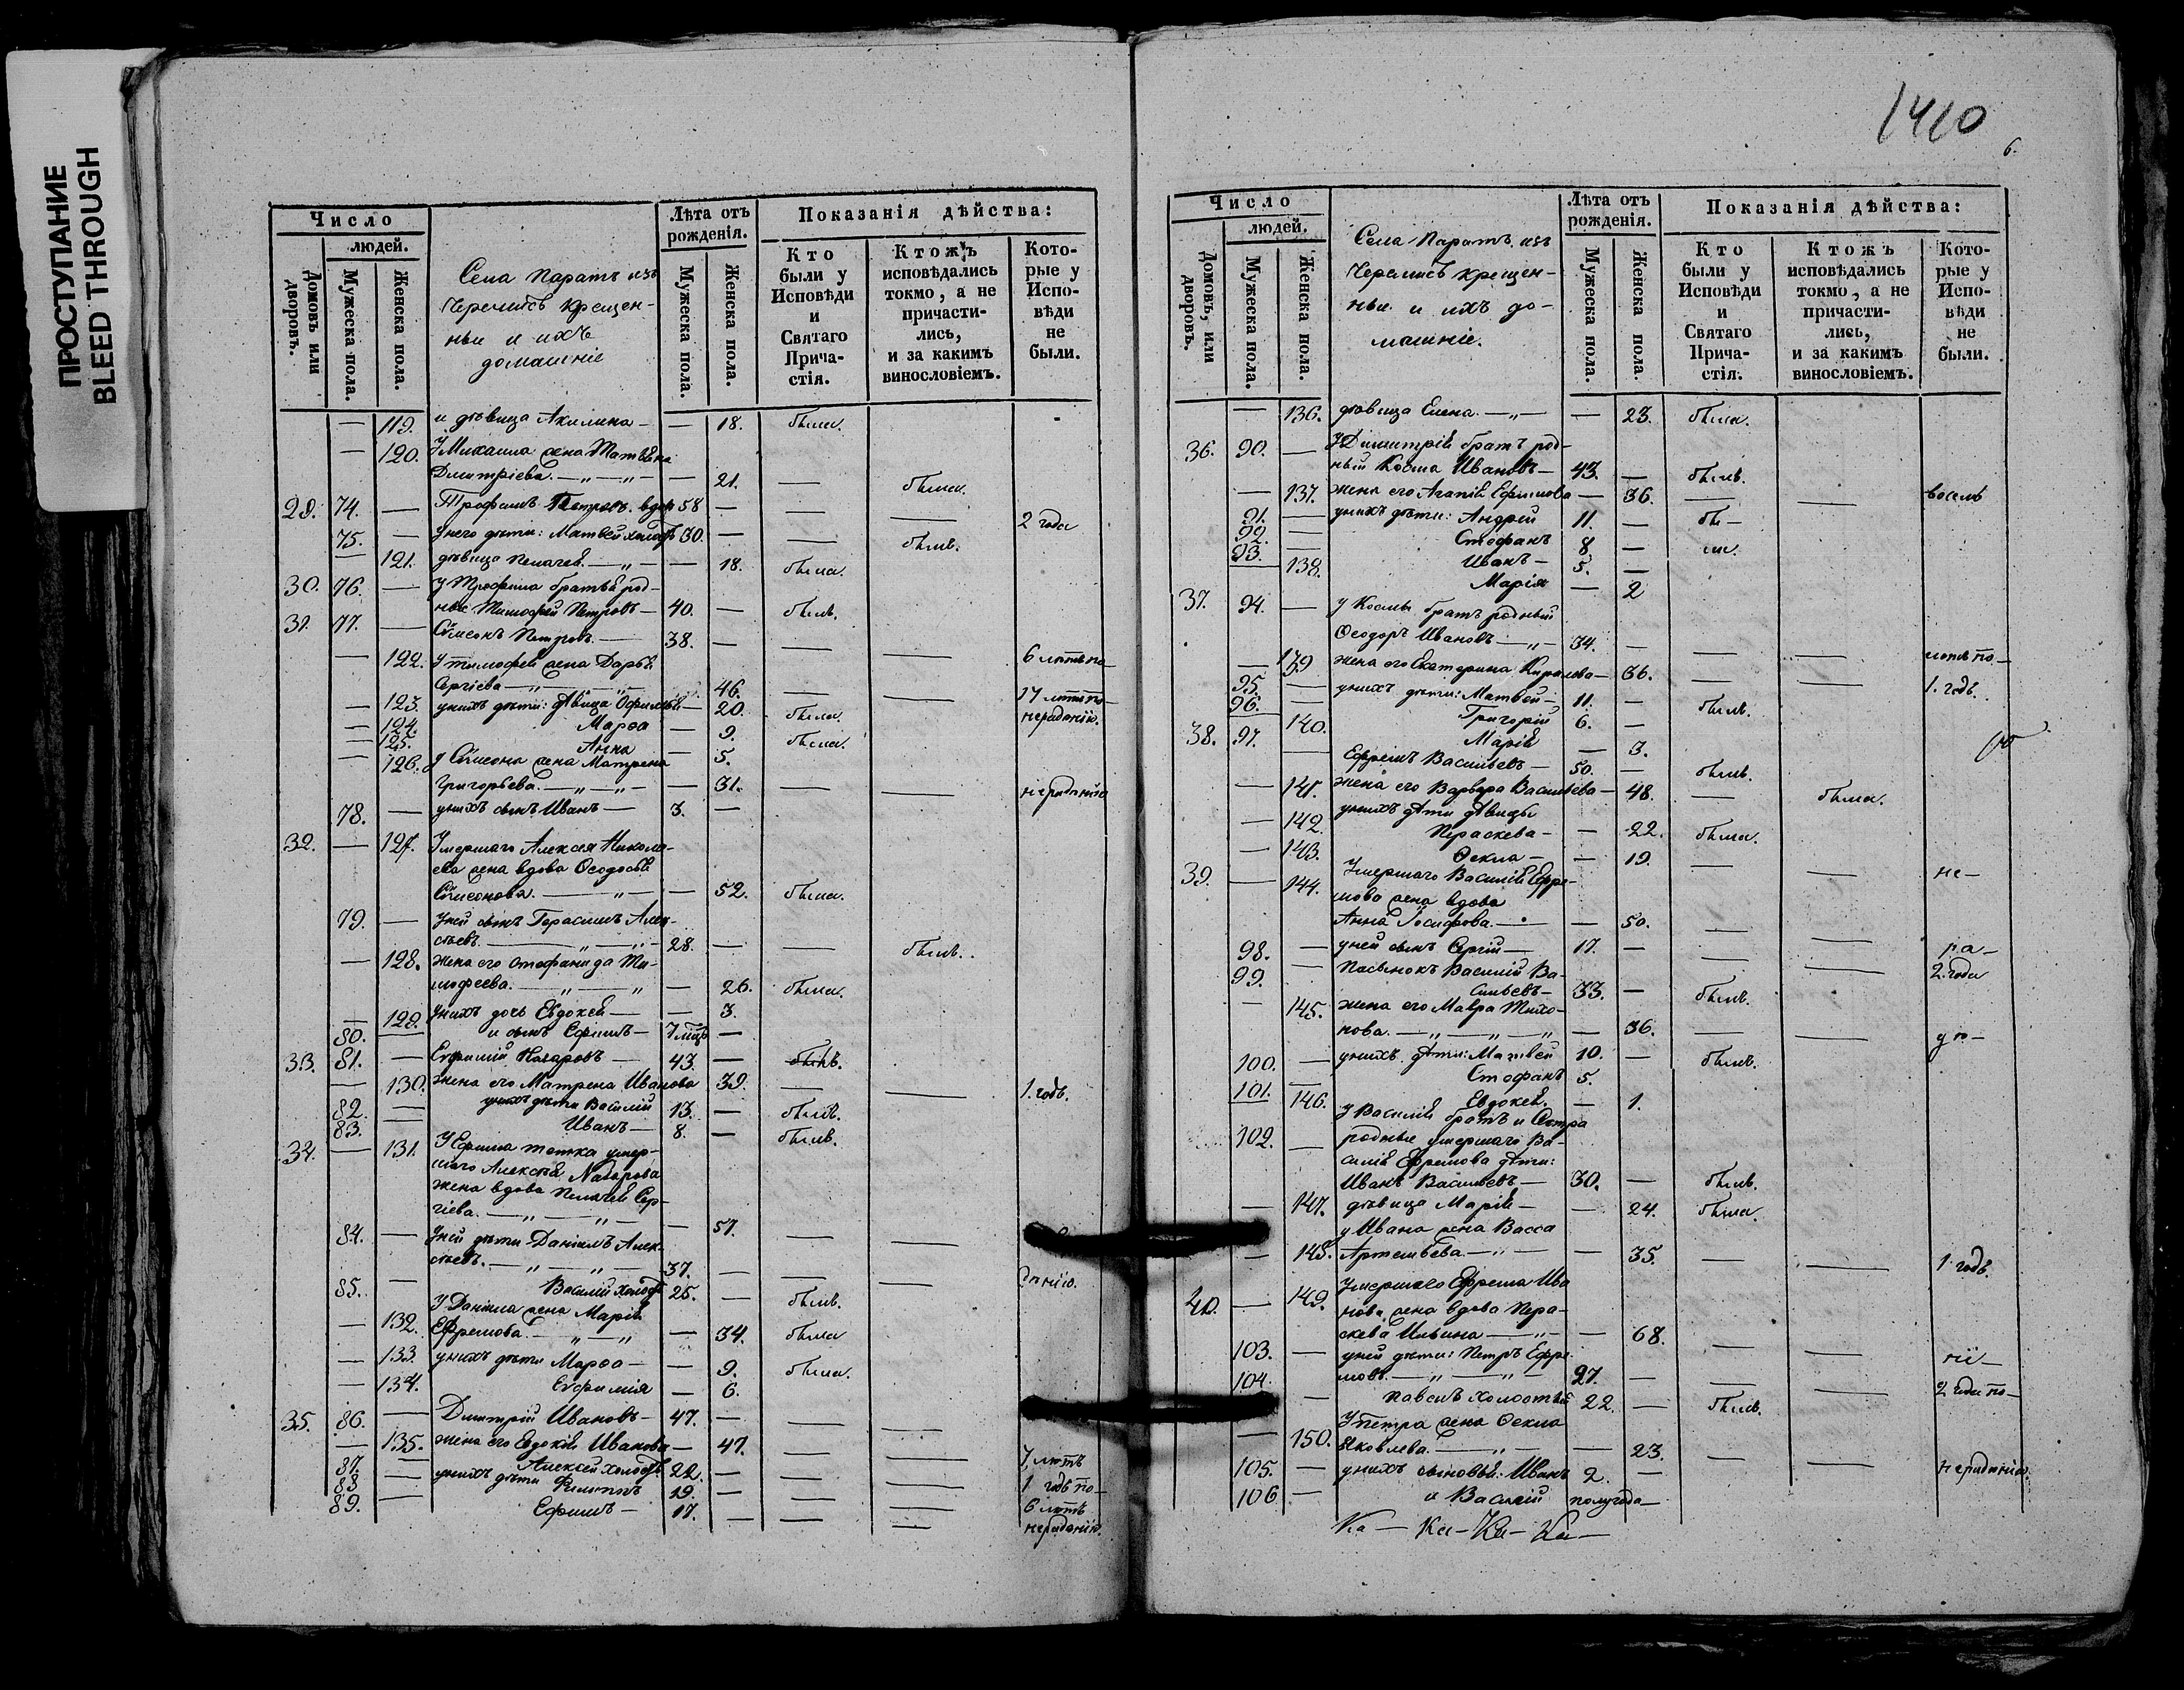 ПРОСТУПАНИЕ
BLEED THROUGH
1410
6.
Число
людей.
Домовъ или дворовъ.
Мужеска пола.
Женска пола.
Села Паратъ изъ
Черемисъ крещен-
ныи и ихъ
домашніе
Лѣта отъ рожденія.
Мужеска пола.
Женска пола.
Показанія дѣйства:
Кто были у Исповѣди и Святаго Прича- стія.
Ктожъ исповѣдались токмо, а не причасти- лись, и за какимъ винословіемъ.
Кото- рые у Испо- вѣди не были.
— 119. и дѣвица Акилина — — 18. была.
— 120. У Михаила жена Матвѣна
Дмитріева. —„—„— — 21. — была.
29. 74. — Трофимъ Петровъ. вдов 58 — — — 2 года
75. — У него дѣти: Матвей холостъ 30. — — былъ.
— 121. дѣвица Пелагея. —„— — 18. была.
30. 76. — У Трофима братья род-
ные Тимофей Петровъ — 40. — былъ.
31. 77. — Симеонъ Петровъ. — 38. — — — 6 лѣтъ по
— 122. У Тимофея жена Дарья
Сергіева —„—„— 46. — — 17 лѣтъ по-
— 123. у нихъ дѣти: дѣвица Офимья — 20. была. нераденію.
— 124. Марѳа — 9. была.
— 125. Анна — 5.
— 126. у Симеона жена Матрена
Григорьева. —„—„— — 31. — — нераденію
78. — у нихъ сынъ Иванъ — 3. —
32. — 127. Умершаго Алексея Никола-
ева жена вдова Ѳеодосья
Симеонова. —„— — 52. была.
79. — У ней сынъ Герасимъ Алек-
сѣевъ. —„—„— 28. — — былъ.
— 128. жена его Стефанида Ти-
мофеева. —„—„ — 26. была.
— 129. У нихъ дочь Евдокея — — 3.
80. — и сынъ Ефимъ — 7 мѣс —
33. 81. — Евфимій Назаровъ — 43. — былъ.
— 130. жена его Матрена Иванова 39. — — 1. годъ.
82. — у нихъ дѣти Василій 13. — былъ.
83. — Иванъ — 8. — былъ.
34. — 131. У Ефима тетка умер-
шаго Алексѣя Назарова
жена вдова Пелагея Сер-
гіева. —„—„— — 57. — —
84. — У ней дѣти Даніилъ Алек-
сѣевъ. —„—„— 37. — — — денію.
85. — Василій холостъ 25. — былъ.
— 132. У Даніила жена Марія
Ефремова. —„—„ — 34. была
— 133. у нихъ дѣти Марѳа — — 9. была.
— 134. Евфимія — 6.
35. 86. — Дмитрій Ивановъ — 47. — — —
— 135. жена его Евдокія Иванова — 47. — — 7 лѣтъ
87. — Алексей холостъ 22. — — — 1 годъ по-
88 — у нихъ дѣти Филиппъ 19. — — — 6 лѣтъ
89. — Ефимъ — 17. — — — нераденію.
Число
людей.
Домовъ, или дворовъ.
Мужеска пола.
Женска пола.
Села Паратъ изъ
Черемисъ крещен-
ныи и ихъ до-
машніе.
Лѣта отъ рожденія.
Мужеска пола.
Женска пола.
Показанія дѣйства:
Кто были у Исповѣди и Святаго Прича- стія.
Ктожъ исповѣдались токмо, а не причасти- лись, и за какимъ винословіемъ.
Кото- рые у Испо- вѣди не были.
— 136. дѣвица Елена. —„— — 23. была.
36. 90. — У Димитрія братъ род-
ный Косма Ивановъ — 43. — былъ.
— 137. жена его Агапія Ефимова — 36. — — восемь
91. — у нихъ дѣти: Андрей 11. — бы —
92. — Стефанъ 8 — ли.
93. — Иванъ — 5. —
— 138. Марія — 2
37. 94. — у Космы братъ родный
Ѳеодоръ Ивановъ —„— 34. — — — лѣтъ по —
— 139 жена его Екатерина Кирилова — 36. — — 1. годъ.
95. — у нихъ дѣти: Матвей — 11. — былъ.
96. — Григорій 6. —
— 140. Марія — 3.
38. 97. — Ефремъ Васильевъ — 50. — былъ.
— 141. жена его Варвара Васильева — 48. — была.
у нихъ дѣти дѣвицы
— 142. Пераскева — — 22. была.
— 143. Ѳекла — — 19. — — не —
39. — 144. Умершаго Василія Ефре-
мова жена вдова
Анна Іосифова. — — 50. — —
98. — у ней сынъ Сергій — 17. — — — ра —
99. — Пасынокъ Василій Ва- 2. года
сильевъ — 33. — былъ.
— 145. жена его Мавра Тихо-
нова. —„—„—„ — 36. — —
100. — у нихъ дѣти: Матвей 10. — былъ.
101. — Стефанъ 5.
146. Евдокея. — 1.
102. — У Василія братъ и сестра
родные умершаго Ва-
силія Ефремова дѣти:
Иванъ Васильевъ — 30. — былъ.
— 147. дѣвица Марія — — 24. была.
у Ивана жена Васса
— 148. Артемьева —„— — 35. — — 1 годъ.
40. — 149. Умершаго Ефрема Ива
нова жена вдова Пера-
скева Ильина —„— — 68. — —
103. — у ней дѣти: Петръ Ефре- ніи —
мовъ. —„—„— 27. — — — 2 года по —
104. — Павелъ холостый 22. — былъ.
— 150. У Петра жена Ѳекла
Яковлева. —„— — 23. — — нераденію.
105. — у нихъ сыновья: Иванъ 2. —
106 — и Василій полугода —